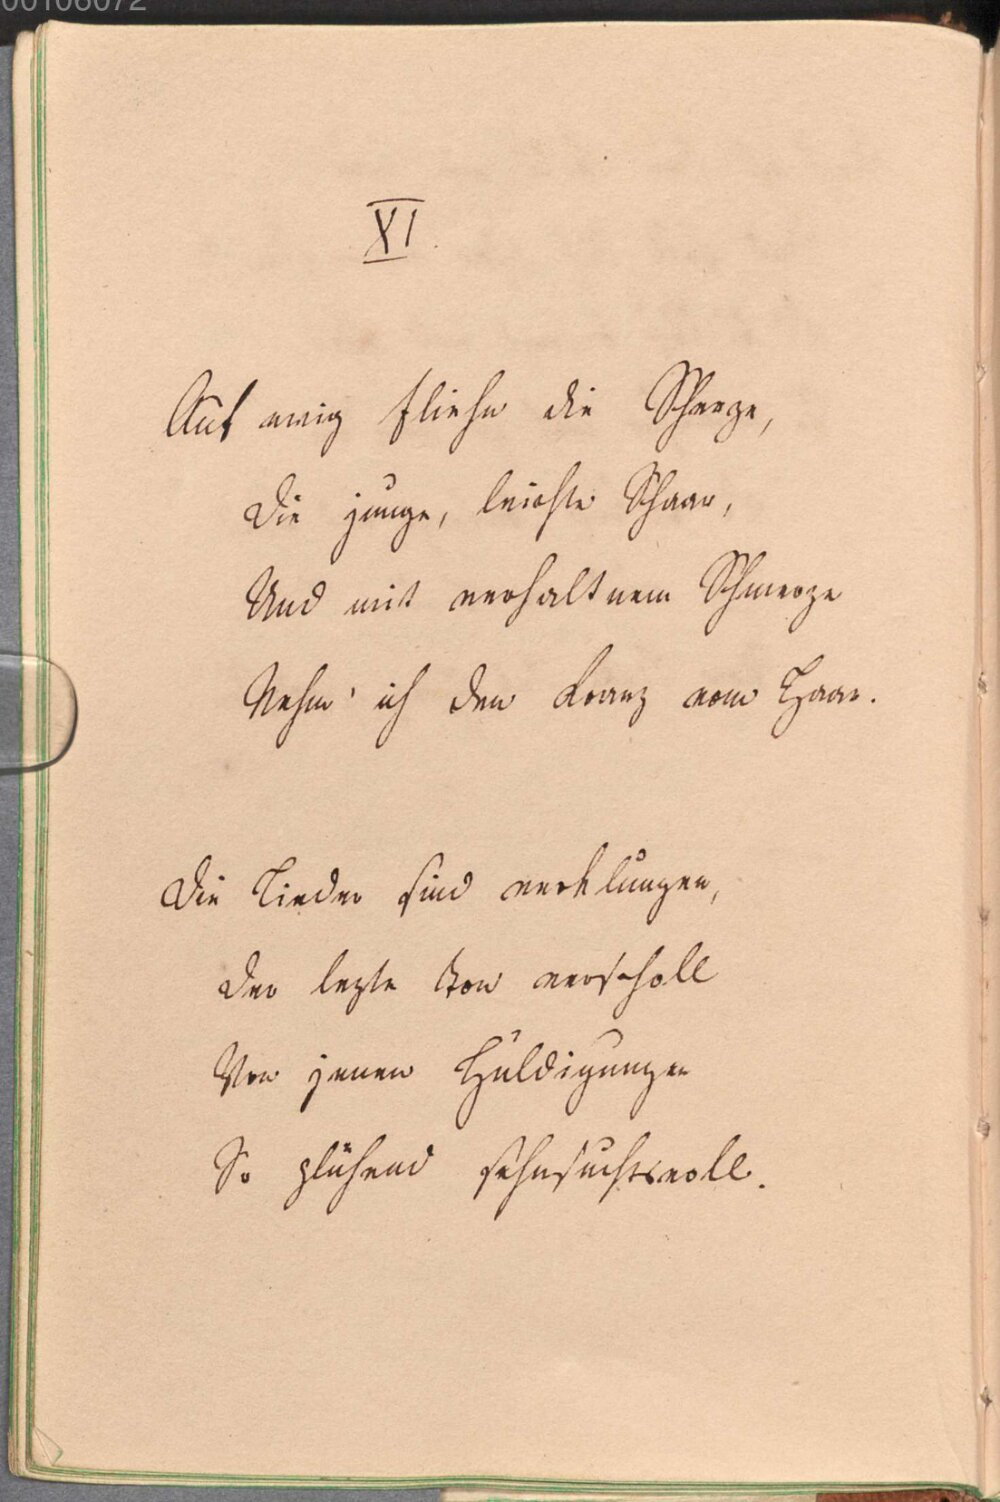 00106072
XI.
Auf ewig fliehn die Scherze,
Die junge, leichte Schaar,
Und mit verhaltnem Schmerze
Nehm' ich den Kranz vom Haar.
Die Lieder sind verklungen,
Der lezte Ton verscholl
Von jenen Huldigungen
So glühend sehnsuchtsvoll.